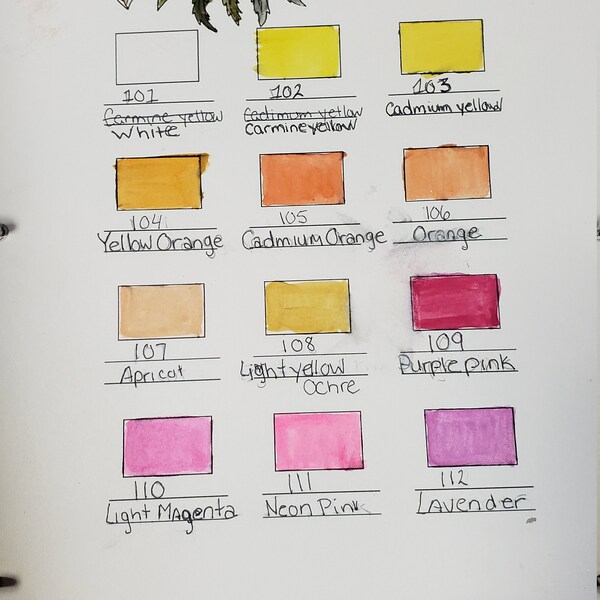 101
Carmine yellow
White
102
Cadimum yellow
Carmine yellow
103
Cadmium yellow
104
Yellow Orange
105
Cadmium Orange
106
Orange
107
Apricot
108
Light yellow
Ochre
109
Purple pink
110
Light Magenta
111
Neon Pink
112
Lavender